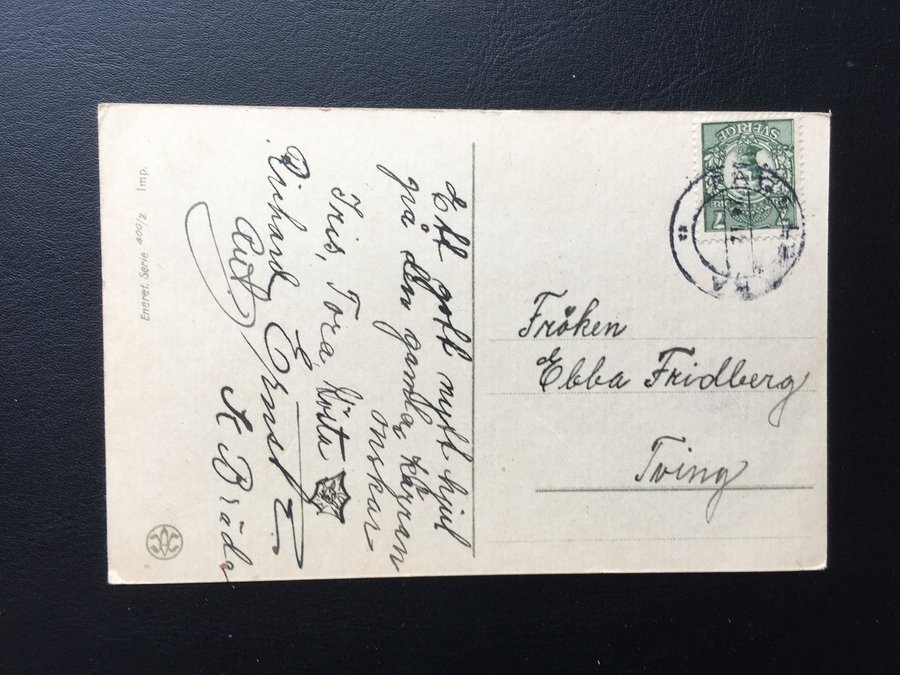 Ett gott nytt hjul
på den gamla kärran
önskar
Iris, Tora, Gösta
Richard, Ernst
Eneret. Serie 400/2 Imp.
SVERIGE
Fröken
Ebba Fridberg
Tving